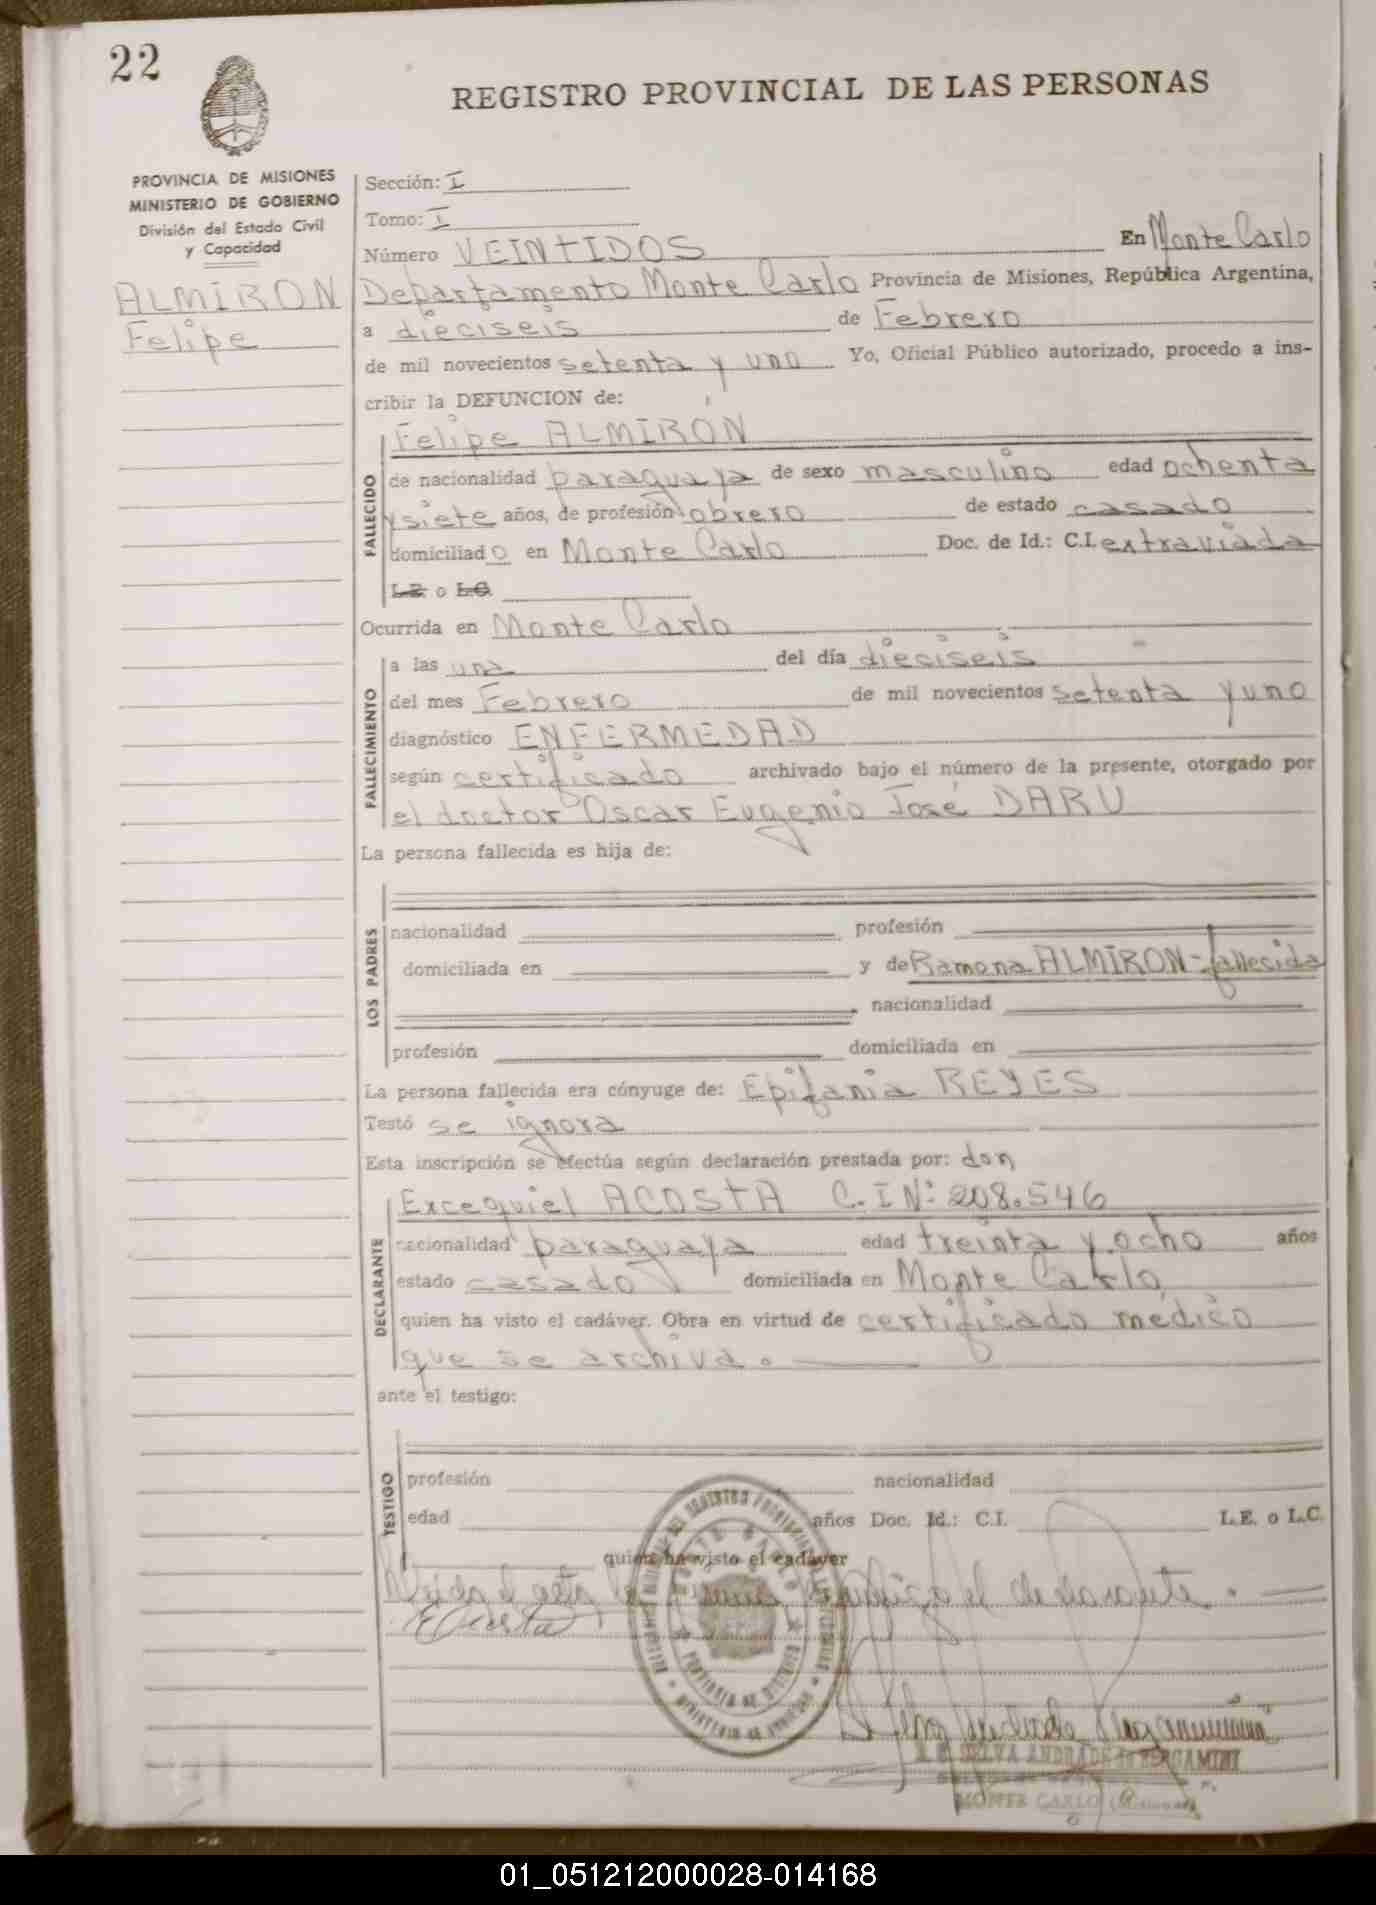 22
REGISTRO PROVINCIAL DE LAS PERSONAS
PROVINCIA DE MISIONES
MINISTERIO DE GOBIERNO
División del Estado Civil
y Capacidad
ALMIRON
Felipe
Sección: I
Tomo: I
Número VEINTIDOS En Monte Carlo
Departamento Monte Carlo Provincia de Misiones, República Argentina,
a dieciseis de Febrero
de mil novecientos setenta y uno Yo, Oficial Público autorizado, procedo a ins-
cribir la DEFUNCION de:
FALLECIDO
Felipe ALMIRON
de nacionalidad paraguaya de sexo masculino edad ochenta
y siete años, de profesión obrero de estado casado
domiciliado en Monte Carlo Doc. de Id.: C.I. extraviada
L.E. o L.C.
Ocurrida en Monte Carlo
FALLECIMIENTO
a las una del día dieciseis
del mes Febrero de mil novecientos setenta y uno
diagnóstico ENFERMEDAD
según certificado archivado bajo el número de la presente, otorgado por
el doctor Oscar Eugenio José DARU
La persona fallecida es hija de:
LOS PADRES
nacionalidad profesión
domiciliada en y de Ramona ALMIRON - fallecida
nacionalidad
profesión domiciliada en
La persona fallecida era cónyuge de: Epifania REYES
Testó se ignora
Esta inscripción se efectúa según declaración prestada por: don
DECLARANTE
Excequiel ACOSTA C.I Nº 208.546
nacionalidad paraguaya edad treinta y ocho años
estado casado domiciliada en Monte Carlo
quien ha visto el cadáver. Obra en virtud de certificado medico
que se archiva.
ante el testigo:
TESTIGO
profesión nacionalidad
edad años Doc. Id.: C.I. L.E. o L.C.
quien ha visto el cadáver
el acta el declarante.
E Acosta
SELVA ANDRADE de BERGAMINI
MONTE CARLO (Misiones)
01_051212000028-014168